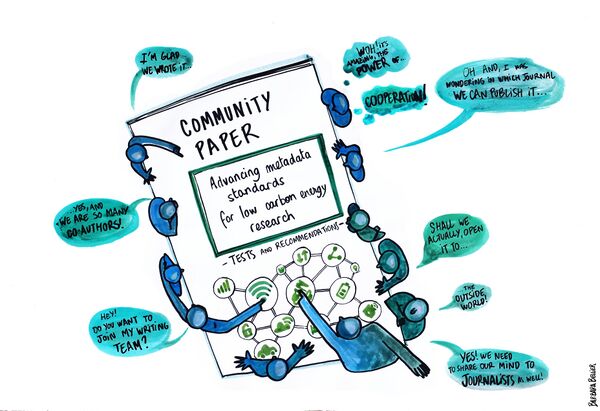 I'M GLAD
WE WROTE IT...
WOH! it's
AMAZING, THE
POWER OF...
COOPERATION!
OH AND, I WAS
WONDERING IN WHICH JOURNAL
WE CAN PUBLISH IT...
COMMUNITY
PAPER
Advancing metadata
standards
for low carbon energy
research
- TESTS AND RECOMMENDATIONS -
...YES, AND
WE ARE SO MANY
CO-AUTHORS!
SHALL WE
ACTUALLY, OPEN
IT TO...
THE
OUTSIDE
WORLD!
HEY!
DO YOU WANT TO
JOIN MY WRITING
TEAM?
YES! WE NEED
TO SHARE OUR MIND TO
JOURNALISTS AS WELL!